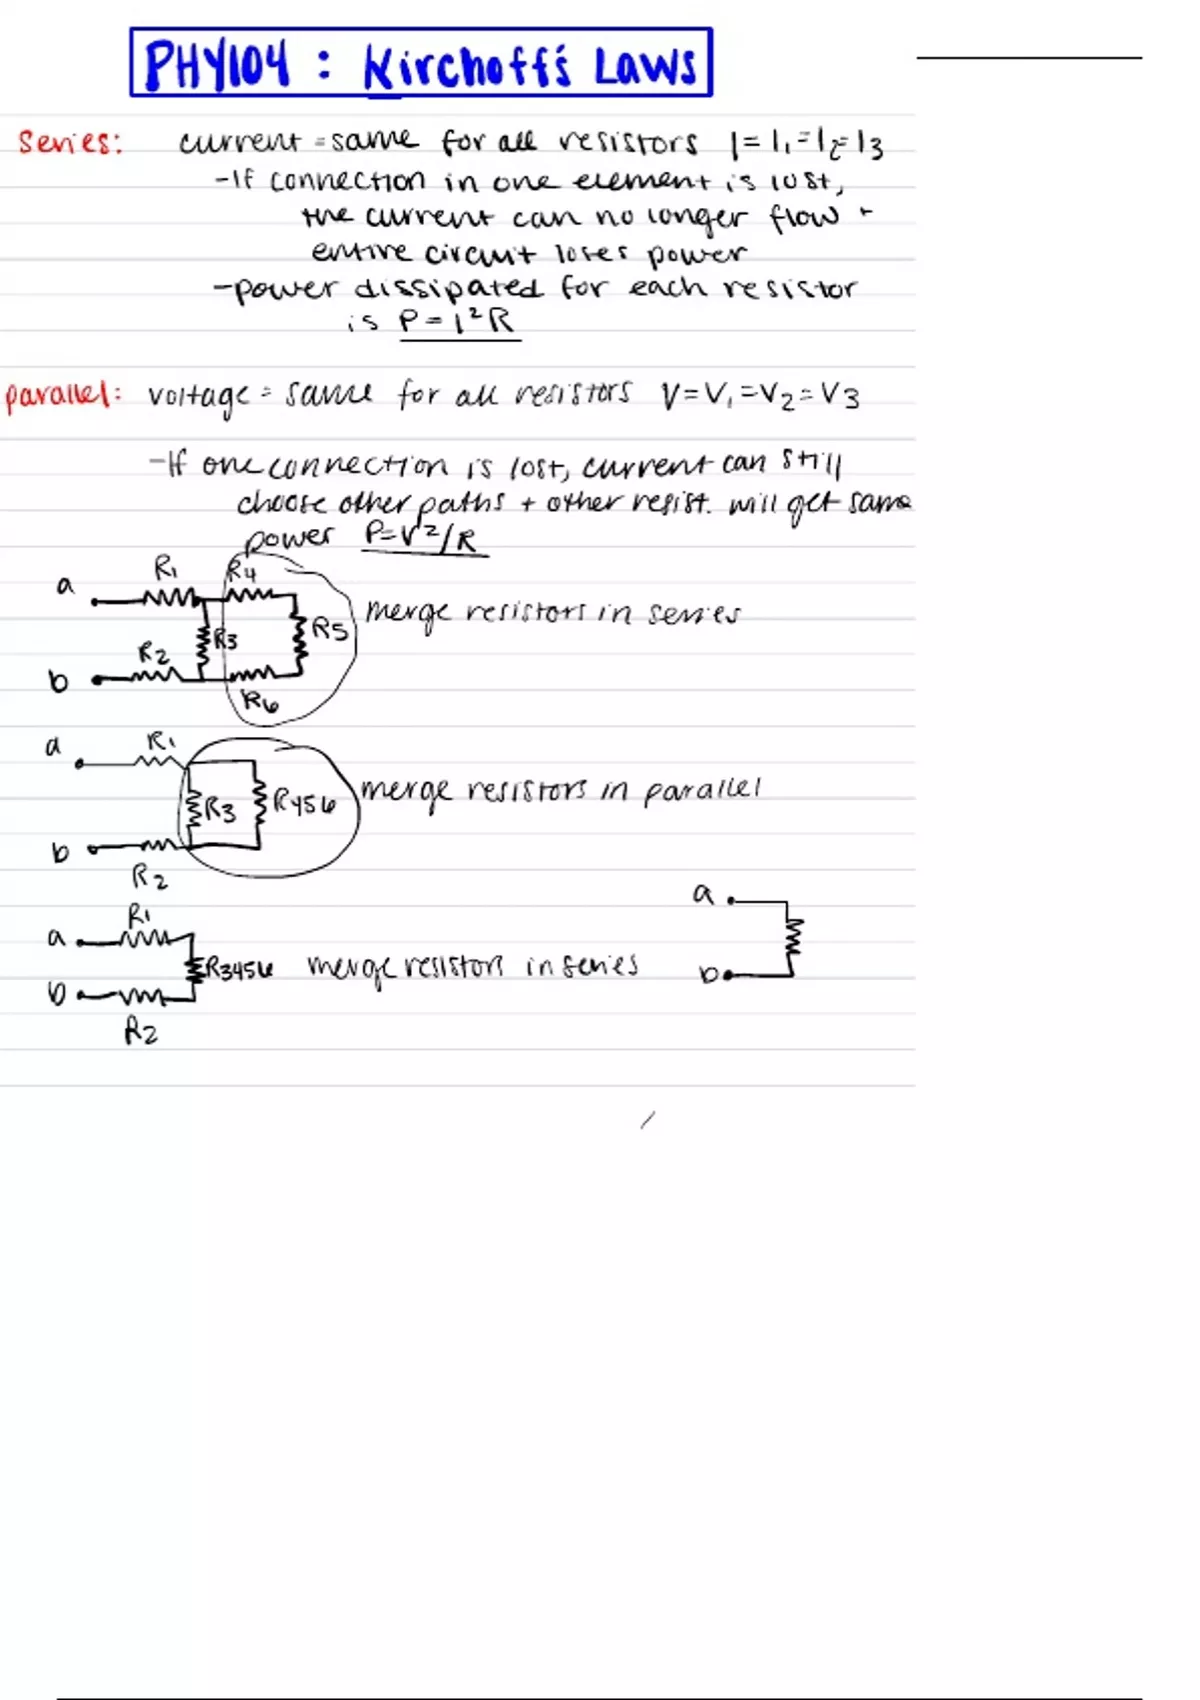 PHY104 : Kirchoff's Laws
Series: current = same for all resistors I = I₁ = I₂ = I₃
-If connection in one element is lost,
the current can no longer flow +
entire circuit loses power
-power dissipated for each resistor
is P = I²R
parallel: voltage = same for all resistors V = V₁ = V₂ = V3
-If one connection is lost, current can still
choose other paths + other resist. will get same
power P=V²/R
R₁ R4
a
merge resistors in series
R3 R5
R2
b
R6
a R₁
merge resistors in parallel
R3 R456
b
R2
a
R₁
a
R3456 merge resistors in series
b
b
R2